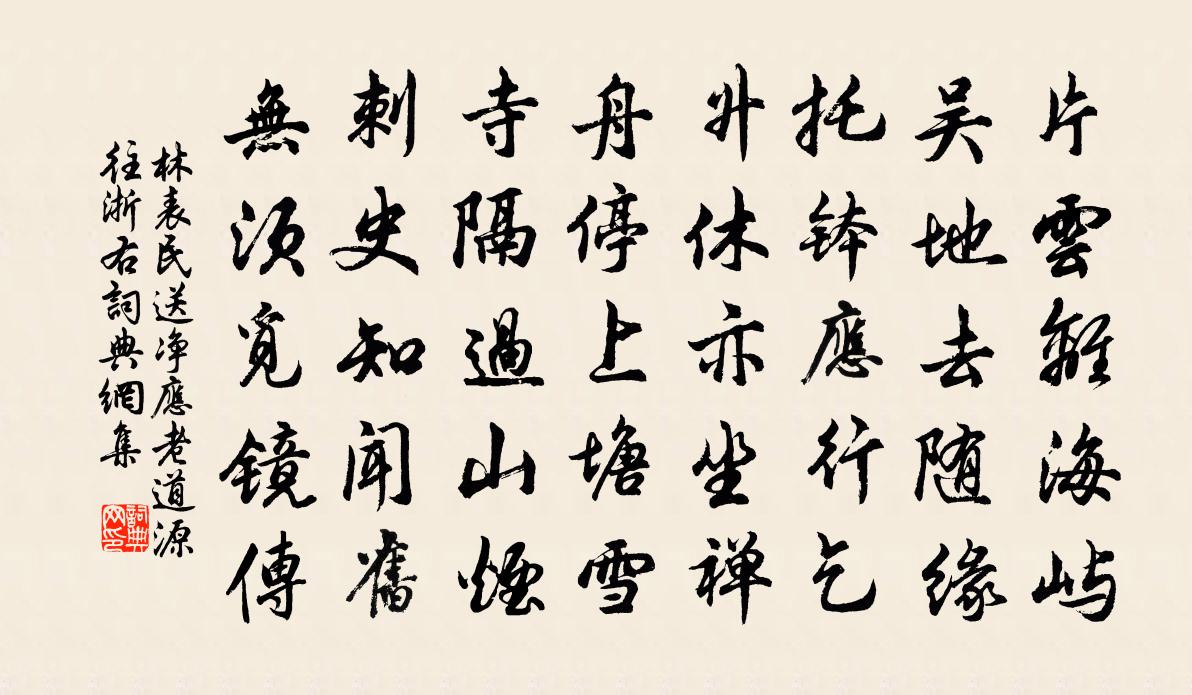 片雲離海嶼
吴地去随缘
托鉢應行乞
升休亦坐禅
舟停上塘雪
寺隔過山煙
刺史知聞舊
無須覓鏡傳
林表民送净應老道源
往浙右詞典網集
詞典網印